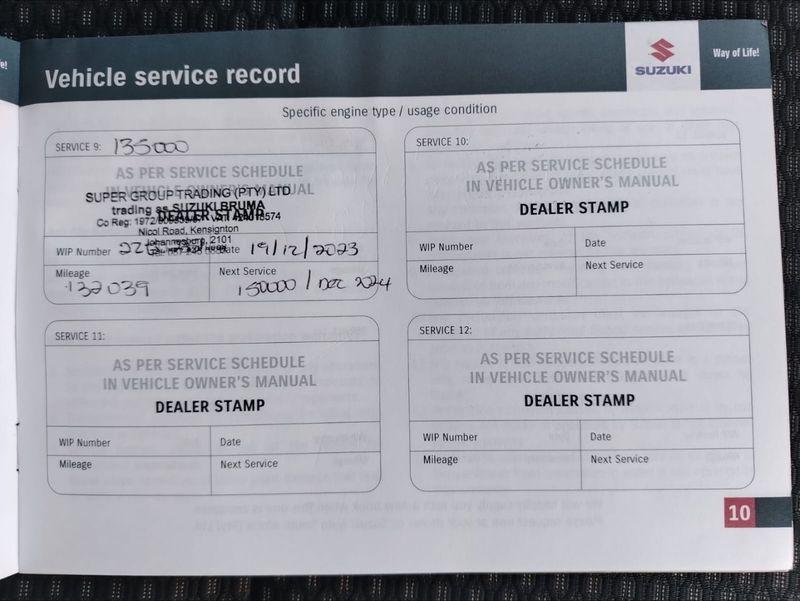 e!
Vehicle service record
SUZUKI
Way of Life!
Specific engine type / usage condition
SERVICE 9: 135000
AS PER SERVICE SCHEDULE
IN VEHICLE OWNER'S MANUAL
SUPER GROUP TRADING (PTY) LTD
trading as SUZUKI BRUMA
DEALER STAMP
Co Reg:
Nicol Road, Kensignton
Johannesburg, 2101
WIP Number
Date 19/12/2023
Mileage
132039
Next Service
150000 / Dec 2024
SERVICE 10:
AS PER SERVICE SCHEDULE
IN VEHICLE OWNER'S MANUAL
DEALER STAMP
WIP Number
Date
Mileage
Next Service
SERVICE 11:
AS PER SERVICE SCHEDULE
IN VEHICLE OWNER'S MANUAL
DEALER STAMP
WIP Number
Date
Mileage
Next Service
SERVICE 12:
AS PER SERVICE SCHEDULE
IN VEHICLE OWNER'S MANUAL
DEALER STAMP
WIP Number
Date
Mileage
Next Service
10